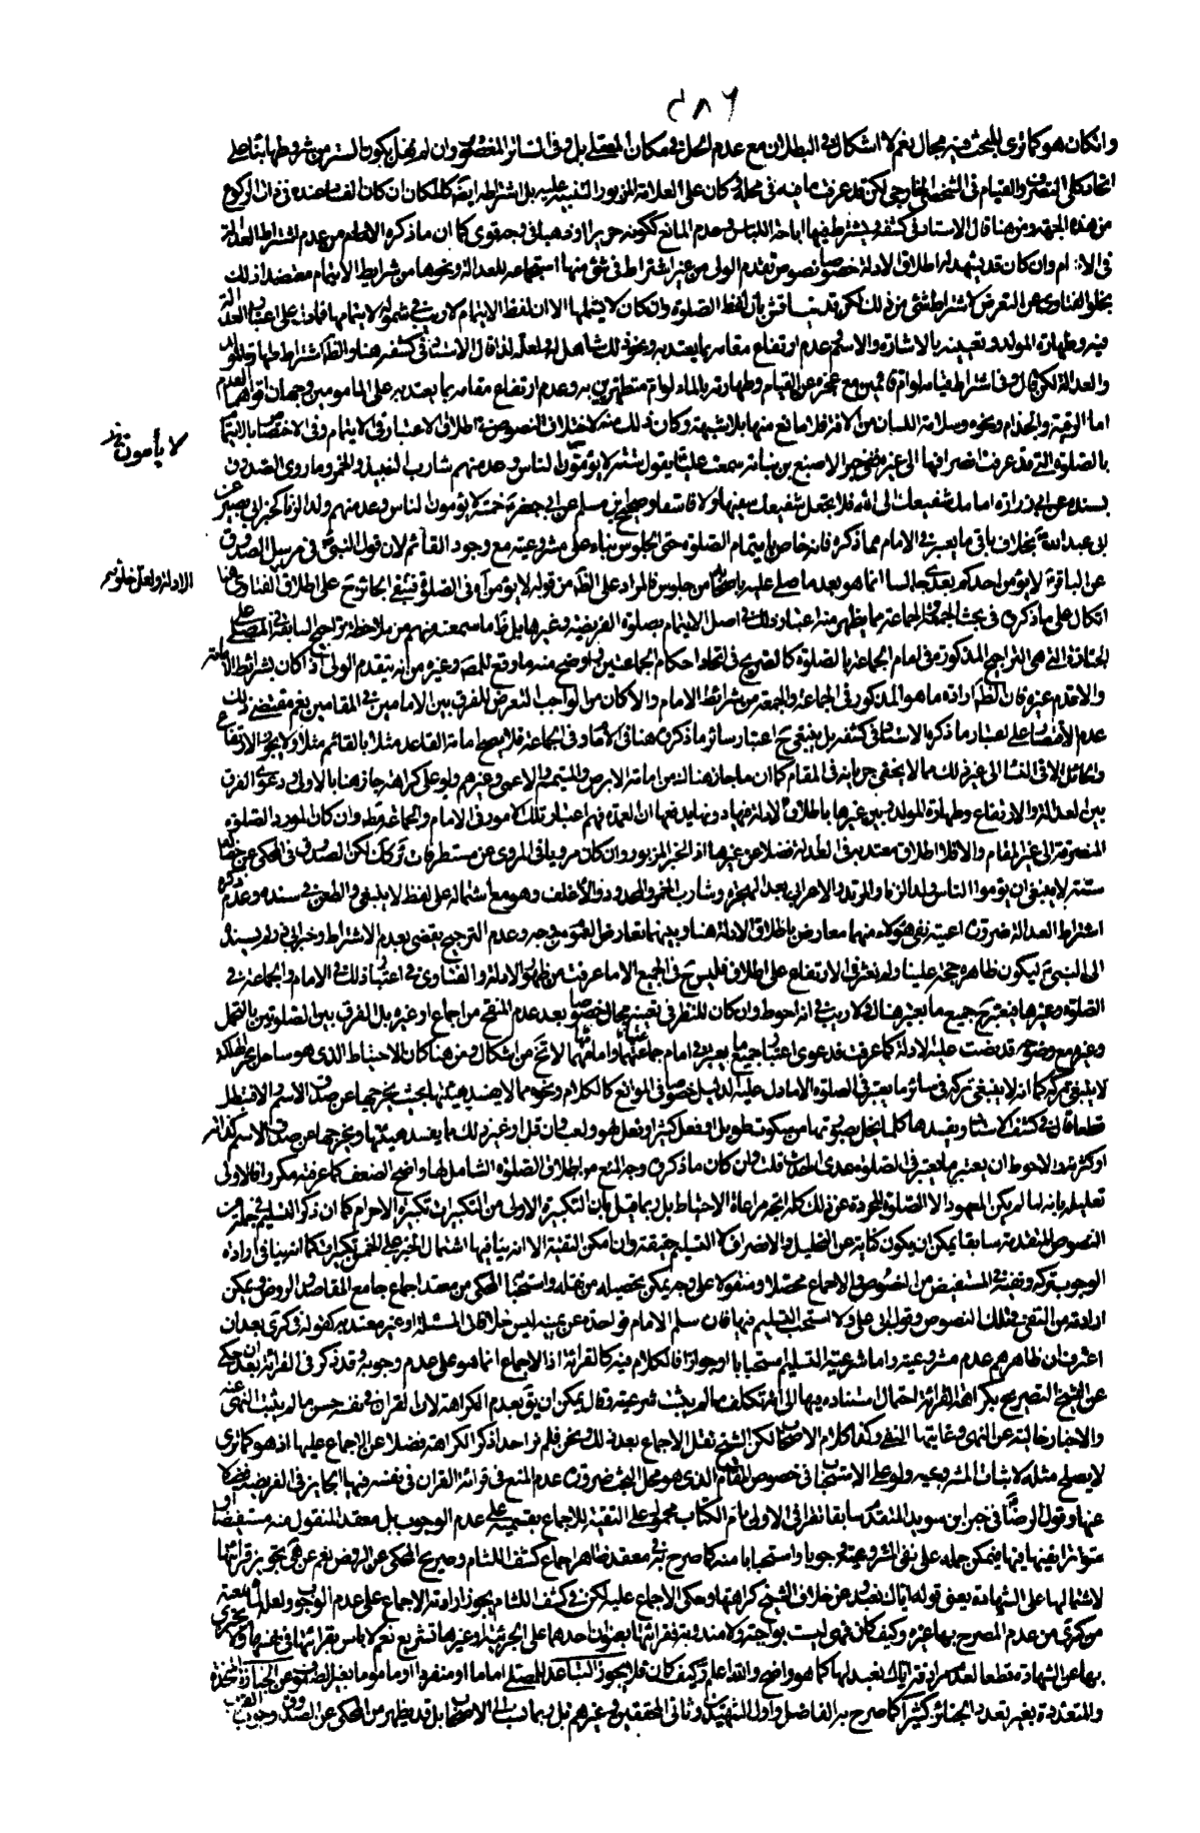 ٤٨٦
وان كان هو كما ترى للبحث فيه مجال نعم لا اشكال في البطلان مع عدم الحل في مكان المصلى بل وفي الساتر المغصوب وان لم نقل بكون الستر من شروطها بناء على
اتحاد كلي التصرف والقيام في الشخص الخارجي لكن قد عرفت ما فيه في محله وكان على العلامة المزبور التنبيه عليه
من هذه الجهة ومن هنا قال الاستاد في كشفه ويشترط فيها اباحة اللباس وعدم المانع ككونه حريرا او ذهبا في وجه قوي كما ان ما ذكره الاظهر من عدم اشتراط العدالة
وان كان قد يشهد له اطلاق الادلة خصوصا نصوص تقدم الولى من غير اشتراط في شئ منها استجماعه للعدالة ونحوها من شرايط الايتمام معتضدا ذلك
بخلو الفتاوى عن التعرض لاشتراط شئ من ذلك لكن قد يناقش بان لفظ الصلوة وان كان لا يشملها الا ان لفظ الايتمام لا ريب في شموله لايتمامها فما دل على اعتبار العدالة
فيه وطهارة المولد وتعيينه بالاشارة والاسم وعدم ارتفاع مقامه بما يعتد به ونحو ذلك شامل له ولعله لذا قال الاستاد في كشفه هنا والظاهر اشتراط طهارة المولد
والعدالة لكن قال وفي اشتراط قيامه لو ام قائمين مع عجزه عن القيام وطهارته بالماء لو ام متطهرين به وعدم ارتفاع مقامه بما يعتد به على المامومين وجهان اقواهما العدم
اما الرقية والجذام ونحوه وسلامة اللسان من الافة فلا مانع منها بلا شبهة وكان ذلك منه لاختلاف النصوص في اطلاق الاعتبار في الايتمام وفي الاختصاص بالايتمام
بالصلوة التي قد عرفت انصرافها الى غيره ففي خبر الاصبغ بن نباتة سمعت عليا يقول ستة لا يؤمون الناس وعد منهم شارب النبيذ والخمر وما روى الصدوق
لا يأمون خ
بسنده عن ابي ذر ان امامك شفيعك الى الله فلا تجعل شفيعك سفيها ولا فاسقا وصحيح بن مسلم عن ابي جعفر خمسة لا يؤمون الناس وعد منهم ولد الزنا كخبر ابي بصير عن
ابي عبد الله بخلاف باقي ما يعتبر في الامام مما ذكره فانه خاص بايتمام الصلوة حتى الجلوس بناء على مشروعيته مع وجود القائم لان قول النبي في مرسل الصدوق
عن الباقر لا يؤمن احدكم بعدي جالسا انما هو بعد ما صلى عليه باصحابه من جلوس فالمراد على الظاهر من قوله لا يؤمن اي في الصلوة فيبقى الجائز ح على اطلاق الفتاوى هنا
الادلة ولعل خلو
اتكال على ما ذكروه في بحث الجمعة والجماعة مما يظهر منه اعتبار ذلك في اصل الايتمام بصلوة الفريضة وغيرها
والاقدم غيره فان الظاهر ارادة ما هو المذكور في الجماعة والجمعة من شرائط الامام والا كان من الواجب التعرض للفرق بين الامامين في المقامين نعم مقتضى ذلك
عدم الاقتصار على اعتبار ما ذكره الاستاد في كشفه بل ينبغي ح اعتبار سائر ما ذكروه هناك في الامام وفي الجماعة فلا يصح امامة القاعد مثلا بالقائم مثلا ولا يجوز الارتفاع
الى غير ذلك مما لا يخفى جريانه في المقام كما ان ما جاز هناك من امامة الابرص والمتيمم والاعمى وغيرهم ولو على كراهة جاز هنا بالاولى ودعوى الفرق
بين العدالة والارتفاع وطهارة المولد وبين غيرها باطلاق الادلة فيها دونها يدفعها ان العمدة فهم اعتبار تلك الامور في الامام والجماعة مطلقا وان كان المورد الصلوة
المنصرفة الى غير المقام والا فلا اطلاق معتد به في العدالة فضلا عن غيرها اذ الخبر المزبور وان كان مرويا في المروي عن مستطرفات ئر كك لكن الصدوق في المحكي عن خصاله
ستة لا ينبغي ان يؤموا الناس ولد الزنا والمرتد والاعرابي بعد الهجرة وشارب الخمر والمحدود والاغلف وهو مع اشتماله على لفظ لا ينبغي والطعن في سنده وعدم ذكره
اشتراط العدالة ضرورة اعمية نفي هؤلاء منهما معارض باطلاق الادلة هنا وبينهما تعارض العموم من وجه وعدم الترجيح يقضي بعدم الاشتراط وخبر ابي ذر لم يسنده
الى النبي ليكون ظاهره حجة علينا ولم نعثر في الارتفاع على اطلاق فليس ح في الجميع الا ما عرفت من ظهور الادلة والفتاوى في اعتبار ذلك في الامام والجماعة في
الصلوة وغيرها فيعتبر ح جميع ما يعتبر هناك ولا ريب في انه احوط وان كان للنظر في تعيينه مجال خصوصا بعد عدم المنقح من اجماع او غيره بل الفرق بين الصلوتين بالتحمل
وغيره مع وضوحه قد ضت عليه الادلة كما عرفت فدعوى اعتبار جميع ما يعتبر في امام جماعتها وامامتها لا تخ من اشكال ومن هنا كان الاحتياط الذي هو ساحل بحر الهلكة
لا ينبغي تركه كما انه لا ينبغي تركه في سائر ما يعتبر في الصلوة الا ما دل عليه الدليل خصوصا في الموانع كالكلام ونحوه مما لا يفسد هيئتها بحيث يخرجها عن صدق الاسم والا فتبطل
قطعا قال في كشف الاستاد ويفسدها كلما يخل بصورتها من سكوت طويل او فعل كثير او فعل لهو ولعب وان قل او غير ذلك مما يفسد هيئتها ويخرجها عن صدق الاسم
او كثرتها والاحوط ان يعتبر ما يعتبر في الصلوة عدى الحدث قلت وان كان ما ذكره من اطلاق الصلوة الشامل لها واضح الضعف كما عرفته مكررا فالاولى
تعليله بانه لما لم يكن المعهود الا الصلوة المجردة عن ذلك كله اتجه مراعاة الاحتياط بل ربما قيل بان التكبيرة الاولى من التكبيرات تكبيرة الاحرام كما ان ذكر التسليم في جملة من
النصوص المتقدمة سابقا يمكن ان يكون كناية عن التحليل والانصراف لا التسليم حقيقة وان امكن التقية الا انه ينافيها اشتمال الخبر على الخمس تكبيرات كما انه ينافي ارادة
الوجوب تركه ونفيه في المستفيض من النصوص والاجماع محصلا ومنقولا على وجه يمكن تحصيله من نقله واستحبابا المحكي من معقد اجماع جامع المقاصد والروض ويمكن
ارادته من النفي في تلك النصوص وقول ابي علي ولا استحب التسليم فيها فان سلم الامام فواحدة عن يمينه ليس خلافا في المسئلة او غير معتد به كقوله في كرى بعد ان
اعترف ان ظاهرهم عدم مشروعيته واما شرعية التسليم استحبابا او جوازا فالكلام فيه كالقرائة اذ الاجماع انما هو على عدم وجوبه وقد ذكر في القرائة بعد ان حكى
عن الشيخ التصريح بكراهة القرائة احتمال استناده فيها الى انه تكلف ما لم يثبت شرعيته وقال يمكن ان يق بعدم الكراهة لان القران في نفسه حسن ما لم يثبت النهي عنه
والاخبار خالية عن النهي وغايتها النفي وكذا كلام الاصحاب لكن الشيخ نقل الاجماع بعد ذلك ونحن فلم نر احدا ذكر الكراهة فضلا عن الاجماع عليها اذ هو كما ترى
لا يصلح مثله لاثبات المشروعية ولو على الاستحباب في خصوص المقام الذي هو محل البحث ضرورة عدم المنع في قرائة القران في نفسه فيها الجائز في الفريضة فضلا
عنها وقول الرضا في خبر ابن سويد المتقدم سابقا تقرا في الاولى بام الكتاب محمول على التقية للاجماع بقسميه على عدم الوجوب بل معقد المنقول منه مستفيضا او
متواترا نفيها فيها فيمكن حمله على نفي المشروعية وجوبا واستحبابا منه كما صرح في معقد ظاهر اجماع كشف اللثام وصريح المحكي عن الروض نعم عن هى تجويز قرائتها
لاشتمالها على الشهادة يعني قوله اياك نعبد عن خلاف الشيخ كراهتها وحكى الاجماع عليه لكن في كشف اللثام يجوز ارادته الاجماع على عدم الوجوب ولعله لما سمعته
من كرى من عدم المصرح بها غيره وكيف كان فهي ليست بواجبة ولا مندوبة فقرائتها بعنوان احدهما على الجزئية او غيرها تشريع نعم لا باس بقرائتها في نفسها ولا يجزى
بها عن الشهادة قطعا لعدم ارادة اياك نعبد لها كما هو واضح والله اعلم وكيف كان فلا يجوز التباعد للمصلى اماما او منفردا او ماموما بغير الصفوف عن الجنازة المتحدة
والمتعددة بغير تعدد الجنائز كثيرا كما صرح به الفاضل واول الشهيدين وثاني المحققين وغيرهم بل ربما نسب الى الاصحاب بل قد يظهر من المحكي عن الصدوق وجوب القرب